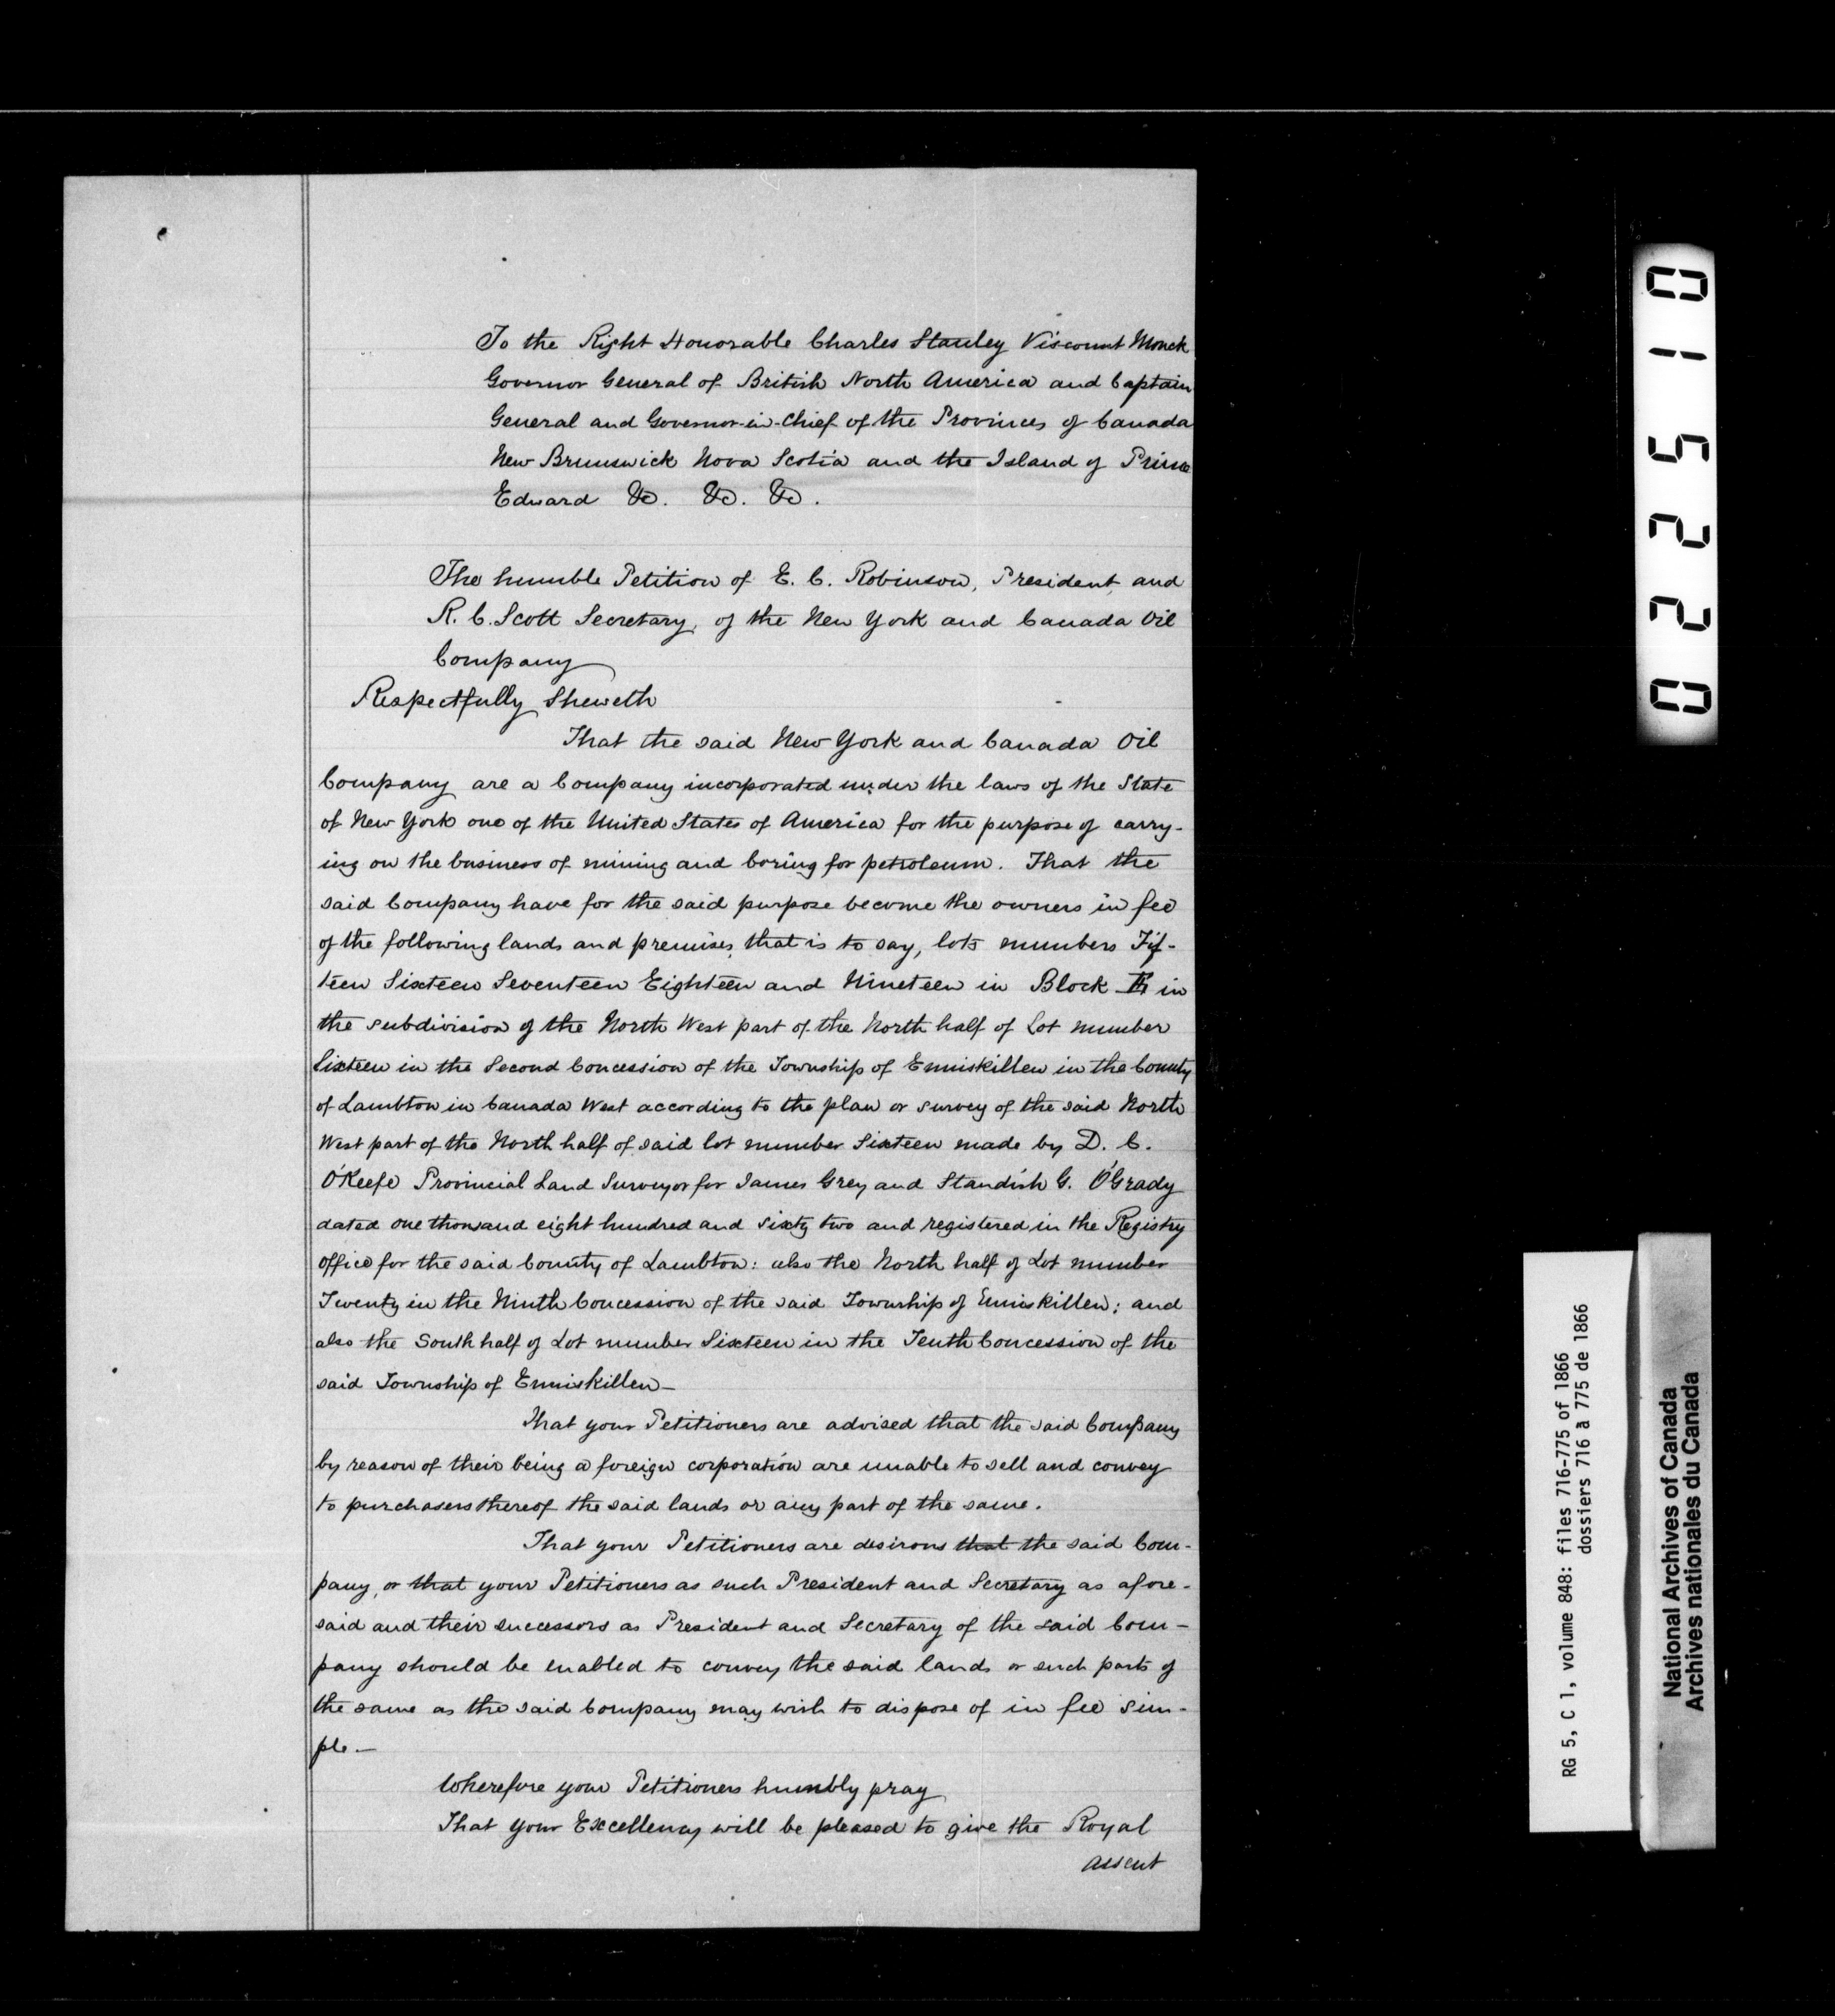 To the Right Honorable Charles Stanley Viscount Monck
Governor General of British North America and Captain
General and Governor-in-Chief of the Provinces of Canada
New Brunswick Nova Scotia and the Island of Prince
Edward &c. &c. &c.
The humble Petition of E. C. Robinson, President, and
R. C. Scott Secretary, of the New York and Canada Oil
Company
Respectfully Sheweth
That the said New York and Canada Oil
Company are a Company incorporated under the laws of the State
of New York one of the United States of America for the purpose of carry-
ing on the business of mining and boring for petroleum. That the
said Company have for the said purpose become the owners in fee
of the following lands and premises, that is to say, lots numbers Fif-
teen Sixteen Seventeen Eighteen and Nineteen in Block in
the subdivision of the North West part of the North half of Lot number
Sixteen in the Second Concession of the Township of Enniskillen in the County
of Lambton in Canada West according to the plan or survey of the said North
West part of the North half of said lot number Sixteen made by D. C.
O'Keefe Provincial Land Surveyor for James Grey and Standish G. O'Grady
dated one thousand eight hundred and sixty two and registered in the Registry
office for the said County of Lambton: also the North half of Lot number
Twenty in the Ninth Concession of the said Township of Enniskillen; and
also the South half of Lot number Sixteen in the Tenth Concession of the
said Township of Enniskillen—
That your Petitioners are advised that the said Company
by reason of their being a foreign corporation are unable to sell and convey
to purchasers thereof the said lands or any part of the same.
That your Petitioners are desirous that the said Com-
pany, or that your Petitioners as such President and Secretary as afore-
said and their successors as President and Secretary of the said Com-
pany should be enabled to convey the said lands or such parts of
the same as the said Company may wish to dispose of in fee sim-
ple.—
Wherefore your Petitioners humbly pray
That your Excellency will be pleased to give the Royal
assent
022510
RG 5, C 1, volume 848: files 716-775 of 1866
dossiers 716 à 775 de 1866
National Archives of Canada
Archives nationales du Canada